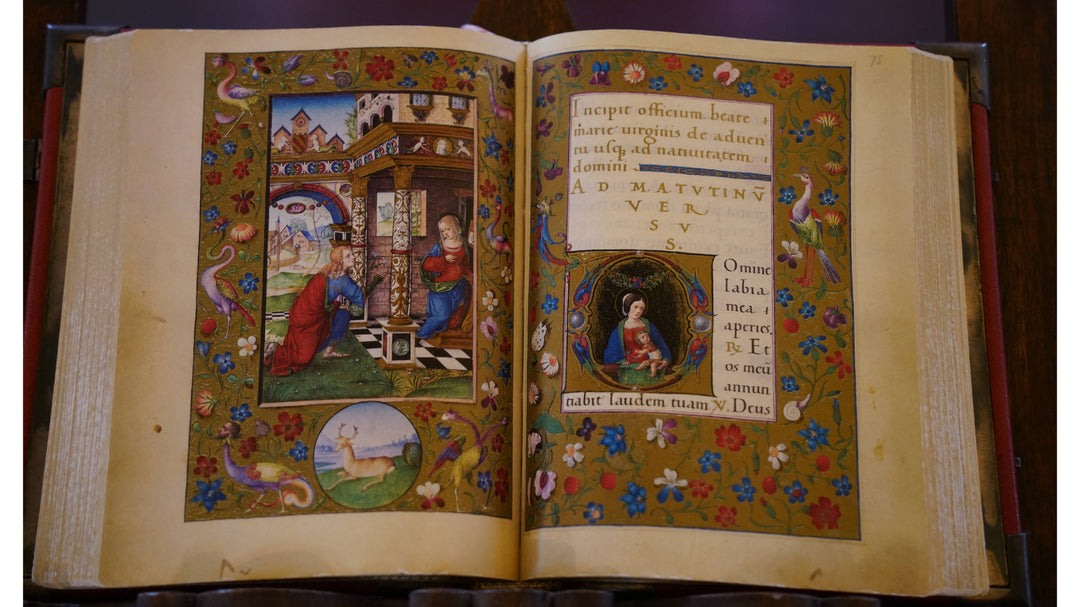 75
Incipit officium beate
marie uirginis de aduen
tu usq ad natiuitatem
domini
AD MATVTINV̄
VER
SV
S.
Omine
labia
mea
aperies.
℞ Et
os meū
annun
tiabit laudem tuam V. Deus